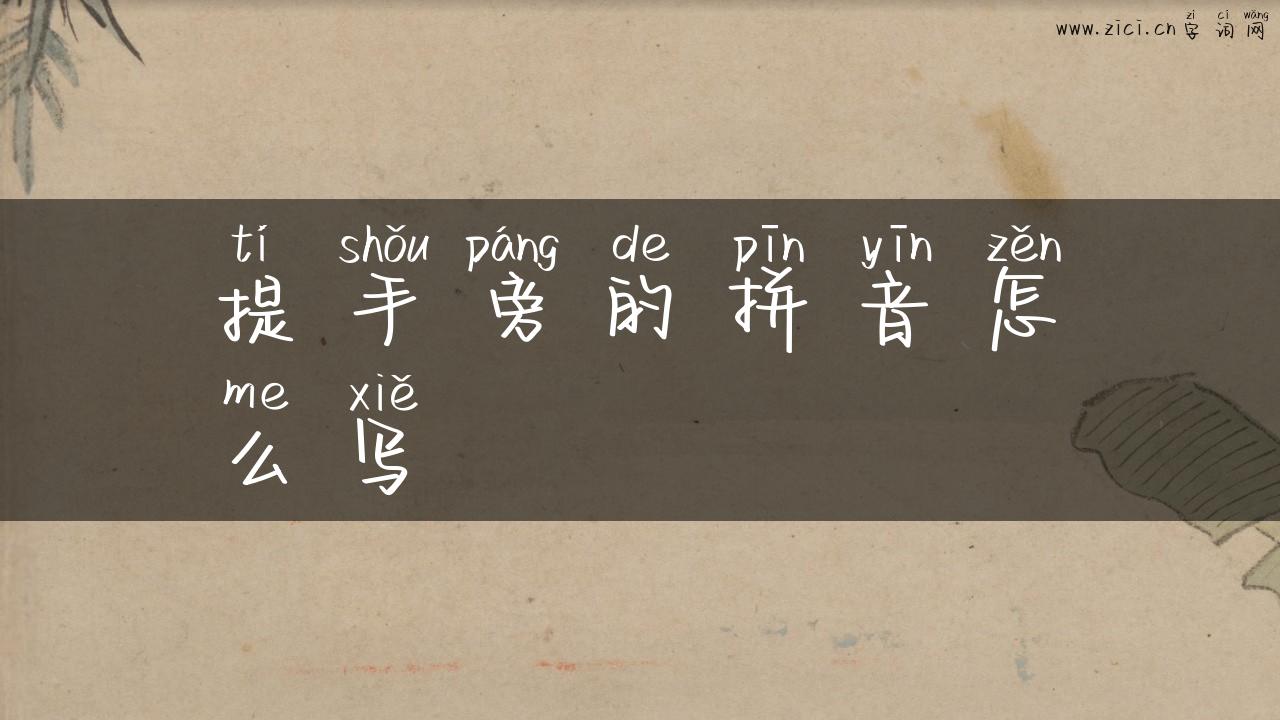 zì cí wǎng
www.zici.cn 字 词 网
tí shǒu páng de pīn yīn zěn
提 手 旁 的 拼 音 怎
me xiě
么 写